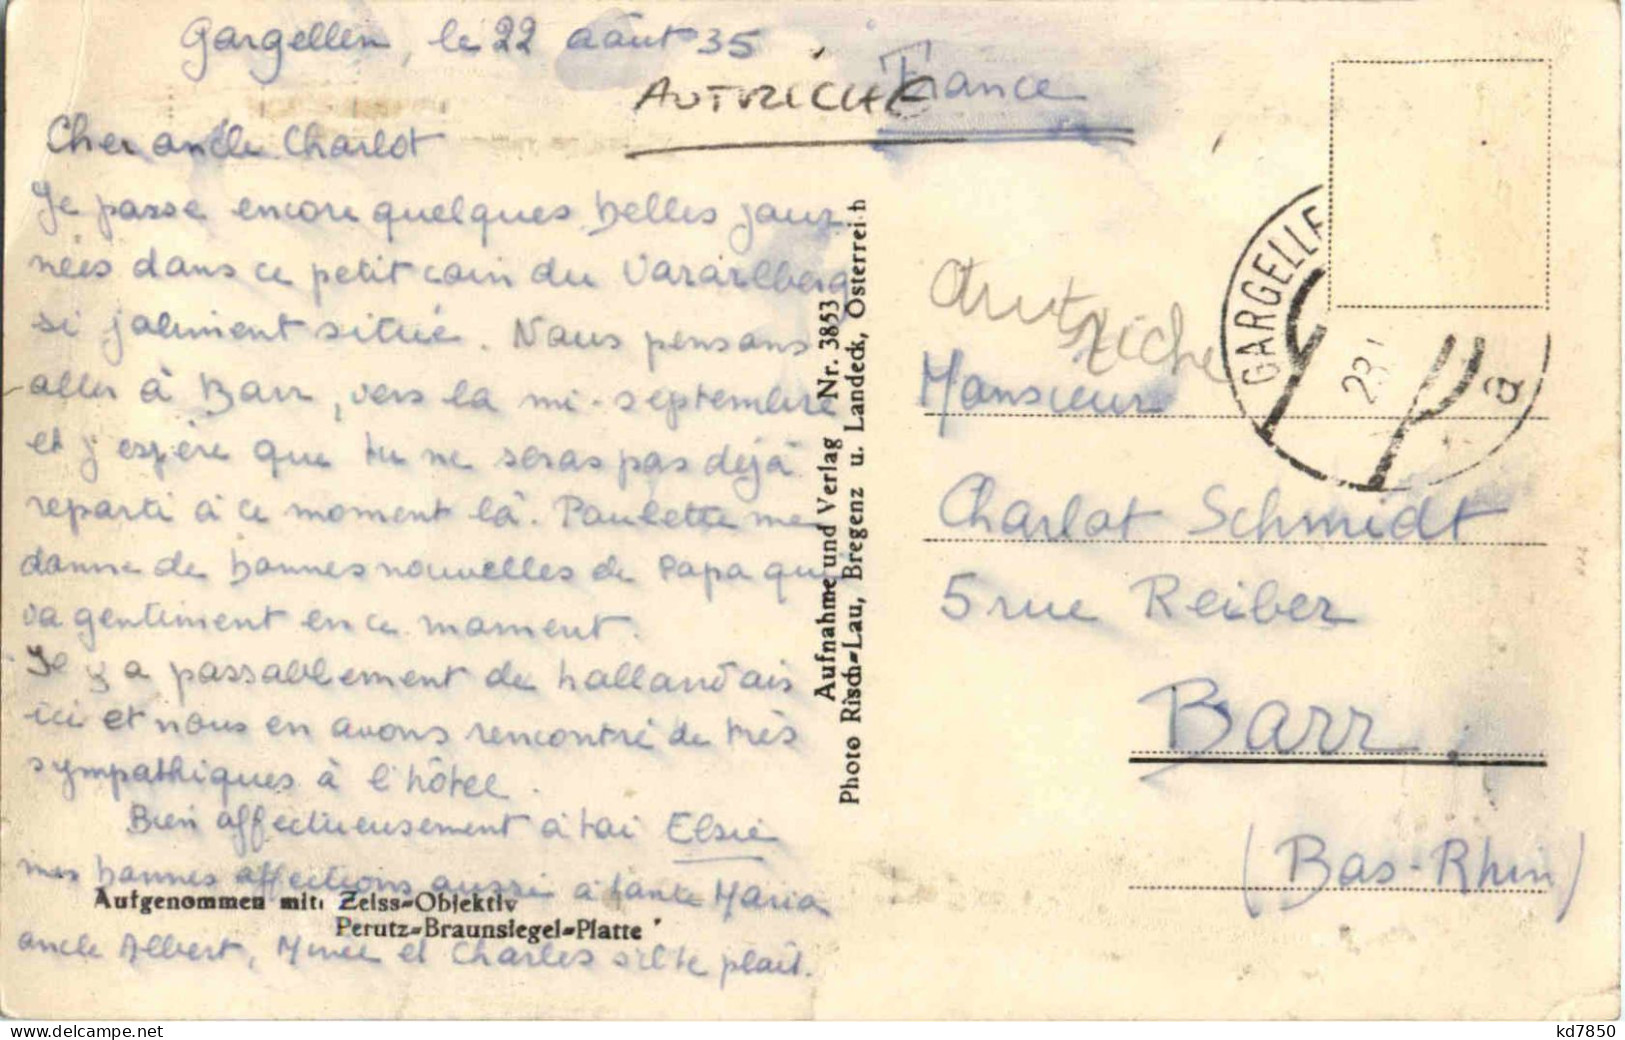 Gargellen, le 22 août 35
AUTRICHE
France
Cher oncle Charlot
Je passe encore quelques belles jour
nées dans ce petit coin du Vorarlberg
si joliment situé. Nous pensons
aller à Barr, vers la mi-septembre
et j'espère que tu ne seras pas déjà
reparti à ce moment là. Paulette me
donne de bonnes nouvelles de Papa qui
va gentiment en ce moment.
Il y a passablement de hollandais
ici et nous en avons rencontré de très
sympathiques à l'hôtel.
Bien affectueusement à toi Elsie
mes bonnes affections aussi à tante Maria
oncle Albert, Minee et Charles s'il te plait.
Aufgenommen mit: Zeiss-Objektiv
Perutz-Braunsiegel-Platte
Aufnahme und Verlag Nr. 3853
Photo Risch-Lau, Bregenz u. Landeck, Österreich
Autriche
GARGELLE
23
a
Monsieur
Charlot Schmidt
5 rue Reiber
Barr
(Bas-Rhin)
kd7850
www.delcampe.net